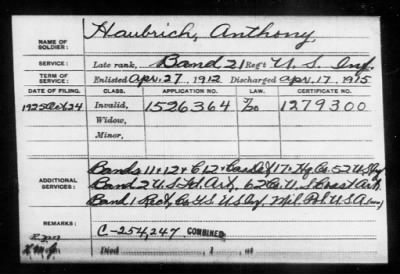 NAME OF SOLDIER: Haubrich, Anthony
SERVICE: Late rank, Band 21 Reg't U. S. Inf.
TERM OF SERVICE: Enlisted Apr. 27, 1912 Discharged Apr. 17, 1915
DATE OF FILING. CLASS. APPLICATION NO. LAW. CERTIFICATE NO.
1925 Oct 24 Invalid, 1526364 1279300
Widow,
Minor,
ADDITIONAL SERVICES: Bands 11 + 12 + C 12 + Cas Det 17 + Hq Co. 52 U.S. Inf
Band 2 U.S. Fld. Art, 62 Co. U.S. Coast Art.
Band 1 Rect Co. U.S. Inf, Mil. Pol. U.S.A.
REMARKS: C-254,247 COMBINED
Died , 1 , at